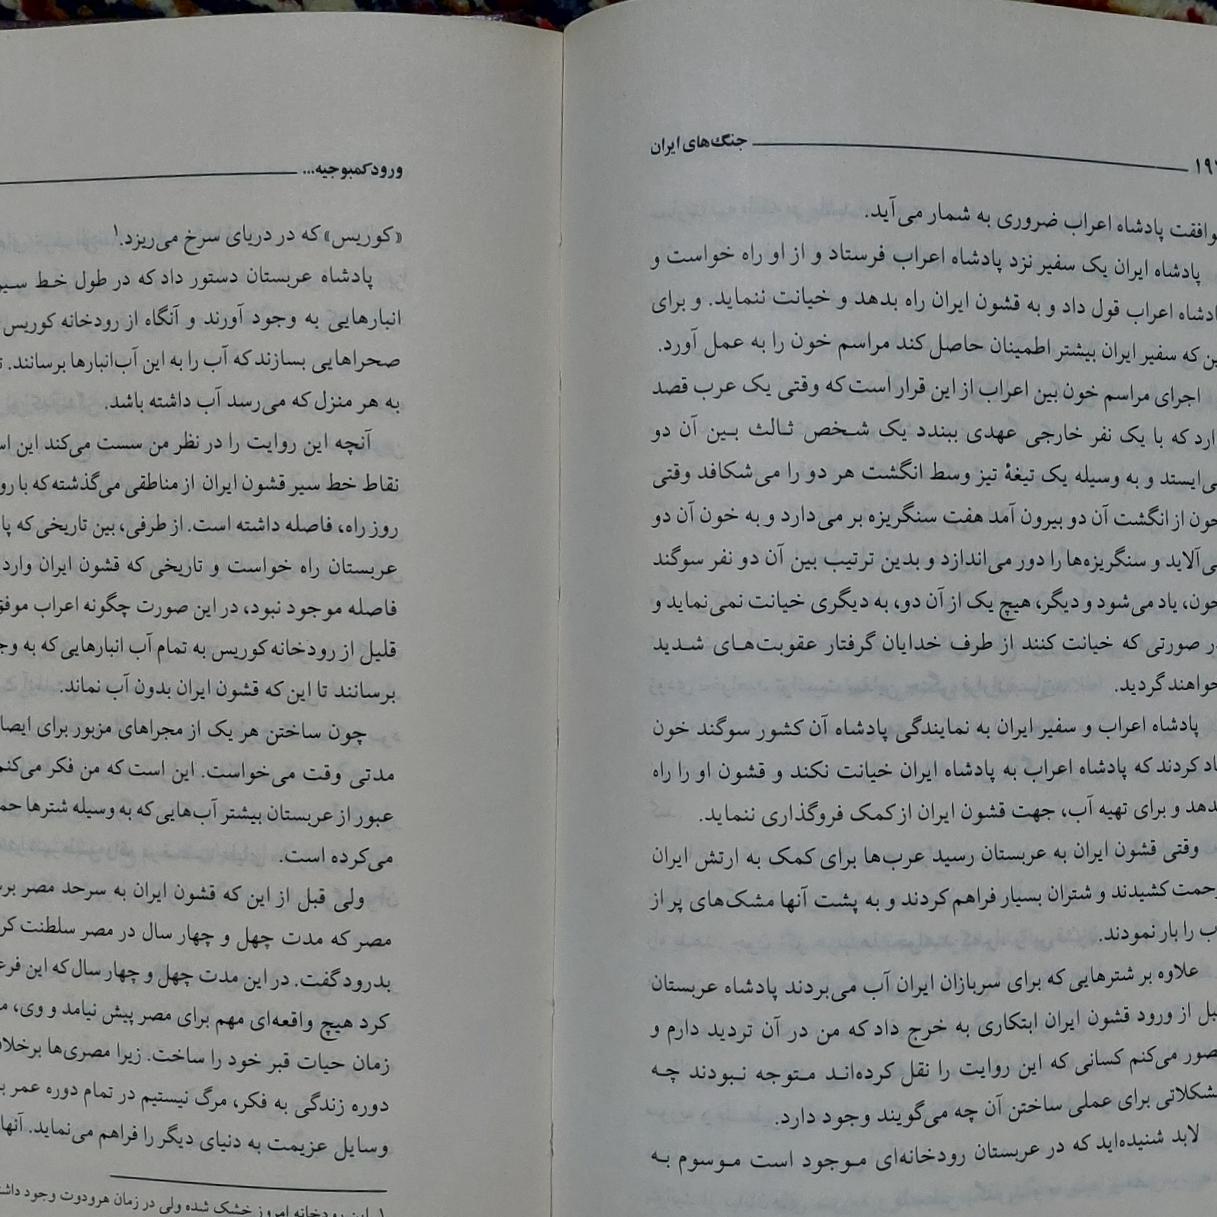 جنگ‌های ایران
پادشاه اعراب ضروری به شمار می‌آید.
پادشاه ایران یک سفیر نزد پادشاه اعراب فرستاد و از او راه خواست و
اعراب قول داد و به قشون ایران راه بدهد و خیانت ننماید. و برای
که سفیر ایران بیشتر اطمینان حاصل کند مراسم خون را به عمل آورد.
اجرای مراسم خون بین اعراب از این قرار است که وقتی یک عرب قصد
که با یک نفر خارجی عهدی ببندد یک شخص ثالث بین آن دو
می‌ایستد و به وسیله یک تیغهٔ تیز وسط انگشت هر دو را می‌شکافد وقتی
خون از انگشت آن دو بیرون آمد هفت سنگریزه بر می‌دارد و به خون آن دو
می‌آلاید و سنگریزه‌ها را دور می‌اندازد و بدین ترتیب بین آن دو نفر سوگند
خون، یاد می‌شود و دیگر، هیچ یک از آن دو، به دیگری خیانت نمی‌نماید و
صورتی که خیانت کنند از طرف خدایان گرفتار عقوبت‌های شدید
خواهند گردید.
پادشاه اعراب و سفیر ایران به نمایندگی پادشاه آن کشور سوگند خون
کردند که پادشاه اعراب به پادشاه ایران خیانت نکند و قشون او را راه
بدهد و برای تهیه آب، جهت قشون ایران از کمک فروگذاری ننماید.
وقتی قشون ایران به عربستان رسید عرب‌ها برای کمک به ارتش ایران
زحمت کشیدند و شتران بسیار فراهم کردند و به پشت آنها مشک‌های پر از
را بار نمودند.
علاوه بر شترهایی که برای سربازان ایران آب می‌بردند پادشاه عربستان
از ورود قشون ایران ابتکاری به خرج داد که من در آن تردید دارم و
تصور می‌کنم کسانی که این روایت را نقل کرده‌اند متوجه نبودند چه
مشکلاتی برای عملی ساختن آن چه می‌گویند وجود دارد.
لابد شنیده‌اید که در عربستان رودخانه‌ای موجود است موسوم به
ورود کمبوجیه...
«کوریس» که در دریای سرخ می‌ریزد.۱
پادشاه عربستان دستور داد که در طول خط سیر
انبارهایی به وجود آورند و آنگاه از رودخانه کوریس
صحراهایی بسازند که آب را به این آب‌انبارها برسانند.
به هر منزل که می‌رسد آب داشته باشد.
آنچه این روایت را در نظر من سست می‌کند این
نقاط خط سیر قشون ایران از مناطقی می‌گذشته که با
روز راه، فاصله داشته است. از طرفی، بین تاریخی که
عربستان راه خواست و تاریخی که قشون ایران وارد
فاصله موجود نبود، در این صورت چگونه اعراب
قلیل از رودخانه کوریس به تمام آب انبارهایی که به
برسانند تا این که قشون ایران بدون آب نماند.
چون ساختن هر یک از مجراهای مزبور برای
مدتی وقت می‌خواست. این است که من فکر
عبور از عربستان بیشتر آب‌هایی که به وسیله شترها
می‌کرده است.
ولی قبل از این که قشون ایران به سرحد مصر
مصر که مدت چهل و چهار سال در مصر سلطنت
بدرود گفت. در این مدت چهل و چهار سال که این
کرد هیچ واقعه‌ای مهم برای مصر پیش نیامد و وی،
زمان حیات قبر خود را ساخت. زیرا مصری‌ها
دوره زندگی به فکر، مرگ نیستیم در تمام دوره عمر
وسایل عزیمت به دنیای دیگر را فراهم می‌نماید. آنها
رودخانه امروز خشک شده ولی در زمان هرودوت وجود